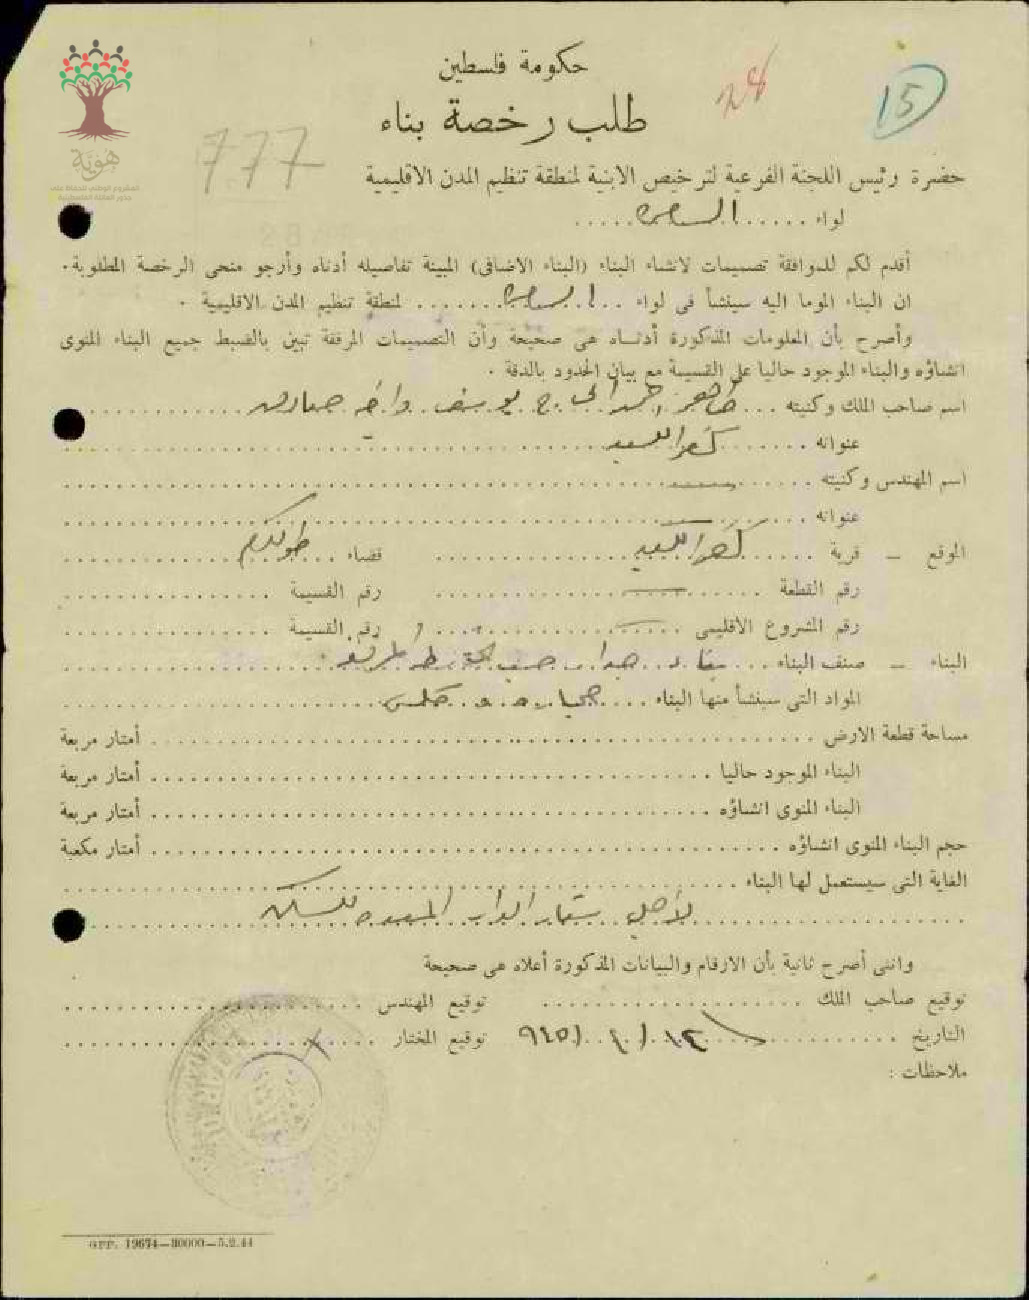 هوية
المشروع الوطني للحفاظ على
جذور العائلة الفلسطينية
15
28
777
حكومة فلسطين
طلب رخصة بناء
حضرة رئيس اللجنة الفرعية لترخيص الابنية لمنطقة تنظيم المدن الاقليمية
لواء ..... السامره .....
أقدم لكم للموافقة تصميمات لانشاء البناء (البناء الاضافى) المبينة تفاصيله أدناه وأرجو منحى الرخصة المطلوبة.
ان البناء الموما اليه سينشأ فى لواء ... السامره ....... لمنطقة تنظيم المدن الاقليمية .
وأصرح بأن المعلومات المذكورة أدناه هى صحيحة وأن التصميمات المرفقة تبين بالضبط جميع البناء المنوى
انشاؤه والبناء الموجود حاليا على القسيمة مع بيان الحدود بالدقة .
اسم صاحب الملك وكنيته ... يوسف .........
عنوانه ........ كفر اللبد ........
اسم المهندس وكنيته ........
عنوانه ........
الموقع — قرية ...... كفر اللبد ........ قضاء .. طولكرم
رقم القطعة ........ رقم القسيمة ........
رقم المشروع الاقليمى ........ رقم القسيمة ........
البناء — صنف البناء ... بناء ........
المواد التى سينشأ منها البناء .... حجاره و كلس ........
مساحة قطعة الارض ........ أمتار مربعة
البناء الموجود حاليا ........ أمتار مربعة
البناء المنوى انشاؤه ........ أمتار مربعة
حجم البناء المنوى انشاؤه ........ أمتار مكعبة
الغاية التى سيستعمل لها البناء ........
لأجل الدار للسكن
وانى أصرح ثانية بأن الارقام والبيانات المذكورة أعلاه هى صحيحة
توقيع صاحب الملك ........ توقيع المهندس ........
التاريخ ........ ١٢/١٠/٩٤٥ توقيع المختار ........
ملاحظات :
GPP. 19674—30000—5.2.44